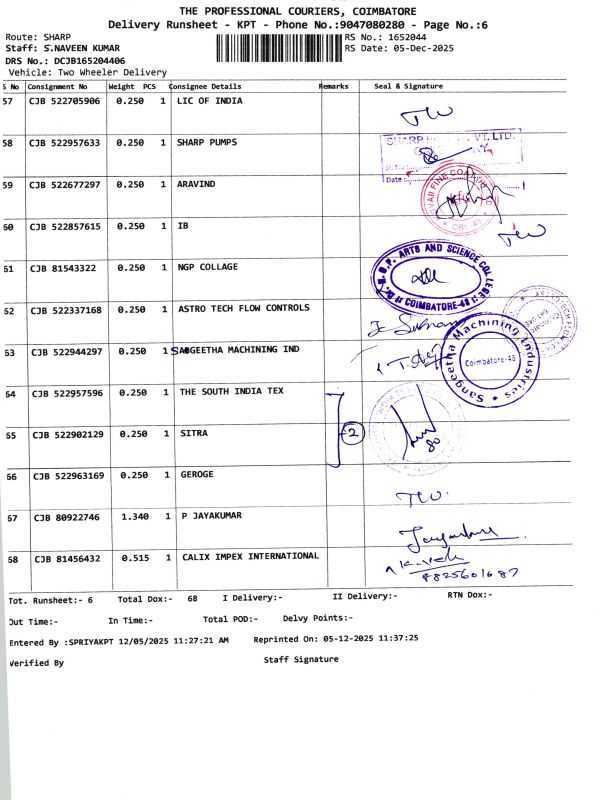 THE PROFESSIONAL COURIERS, COIMBATORE
Delivery Runsheet - KPT - Phone No.:9047080280 - Page No.:6
Route: SHARP
RS No.: 1652044
Staff: S.NAVEEN KUMAR
RS Date: 05-Dec-2025
DRS No.: DCJB165204406
Vehicle: Two Wheeler Delivery
S No Consignment No Weight PCS Consignee Details Remarks Seal & Signature
57 CJB 522705906 0.250 1 LIC OF INDIA
TW
58 CJB 522957633 0.250 1 SHARP PUMPS
SHARP PVT. LTD.
Date :
59 CJB 522677297 0.250 1 ARAVIND
60 CJB 522857615 0.250 1 IB
TW
61 CJB 81543322 0.250 1 NGP COLLAGE
Dr. N.G.P. ARTS AND SCIENCE COLLEGE
COIMBATORE-48
62 CJB 522337168 0.250 1 ASTRO TECH FLOW CONTROLS
63 CJB 522944297 0.250 1 SANGEETHA MACHINING IND
Sangeetha Machining Industries
Coimbatore-45
64 CJB 522957596 0.250 1 THE SOUTH INDIA TEX
2
65 CJB 522902129 0.250 1 SITRA
66 CJB 522963169 0.250 1 GEROGE
TW.
67 CJB 80922746 1.340 1 P JAYAKUMAR
68 CJB 81456432 0.515 1 CALIX IMPEX INTERNATIONAL
9825601687
Tot. Runsheet:- 6 Total Dox:- 68 I Delivery:- II Delivery:- RTN Dox:-
Out Time:- In Time:- Total POD:- Delvy Points:-
Entered By :SPRIYAKPT 12/05/2025 11:27:21 AM Reprinted On: 05-12-2025 11:37:25
Verified By Staff Signature